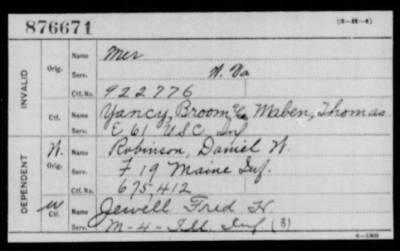 876671
(3-H-4)
INVALID
Orig.
Name Mer
Serv. W. Va
Ctf. No. 922776
Ctf. Yancy, Broom, Maben, Thomas
E 61 USC Inf
DEPENDENT
W. Orig.
Name Robinson, Daniel W.
Serv. F 19 Maine Inf.
Ctf. No. 675412
W Ctf.
Name Jewell Fred H.
Serv. M-4-Ill. Inf (3)